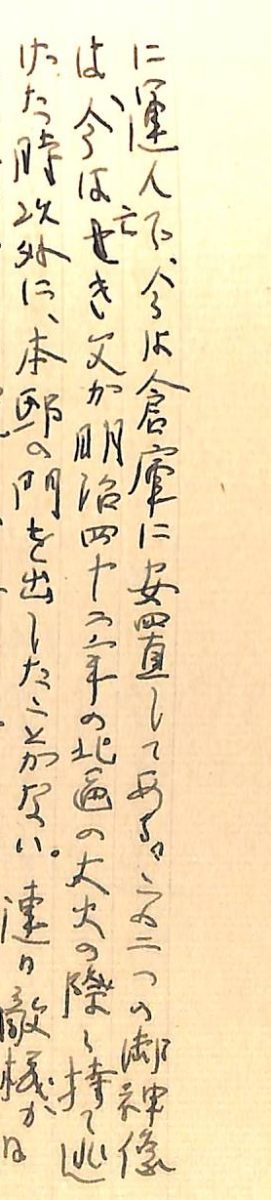 に運んで、今は倉庫に安置してある。この二つの御神像
は、今は亡き父が明治四十二年の北区の大火の際に持て逃
げた時以外に、本邸の門を出したことがない。連日敵機が日